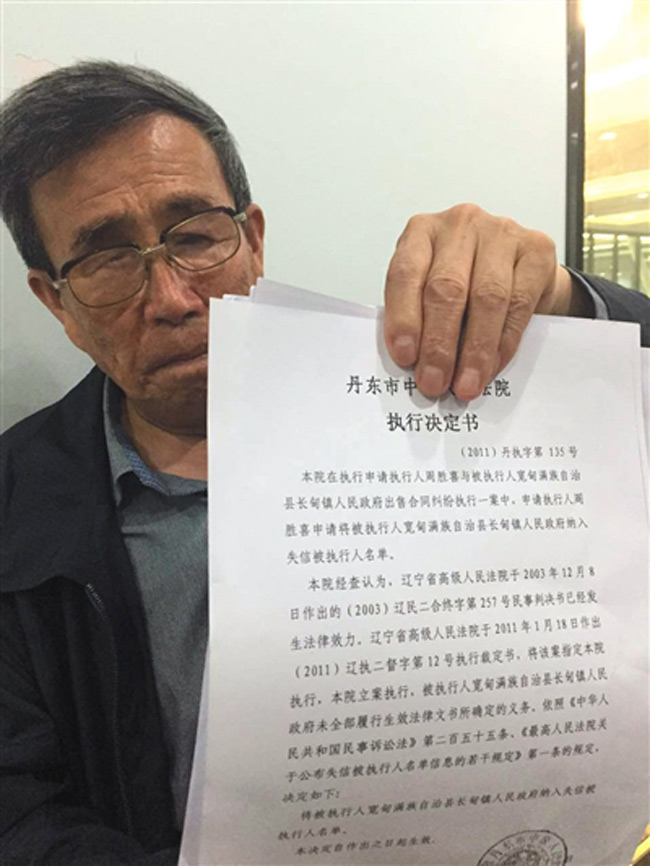 丹东市中 法院
执行决定书
（2011）丹执字第 135号
本院在执行申请执行人周胜喜与被执行人宽甸满族自治
县长甸镇人民政府出售合同纠纷执行一案中，申请执行人周
胜喜申请将被执行人宽甸满族自治县长甸镇人民政府纳入
失信被执行人名单。
本院经查认为，辽宁省高级人民法院于 2003 年 12 月 8
日作出的（2003）辽民二合终字第 257 号民事判决书已经发
生法律效力。辽宁省高级人民法院于 2011 年 1 月 18 日作出
（2011）辽执二督字第 12 号执行裁定书，将该案指定本院
执行，本院立案执行，被执行人宽甸满族自治县长甸镇人民
政府未全部履行生效法律文书所确定的义务。依照《中华人
民共和国民事诉讼法》第二百五十五条、《最高人民法院关
于公布失信被执行人名单信息的若干规定》第一条的规定，
决定如下：
将被执行人宽甸满族自治县长甸镇人民政府纳入失信被
执行人名单。
本决定自作出之日起生效。